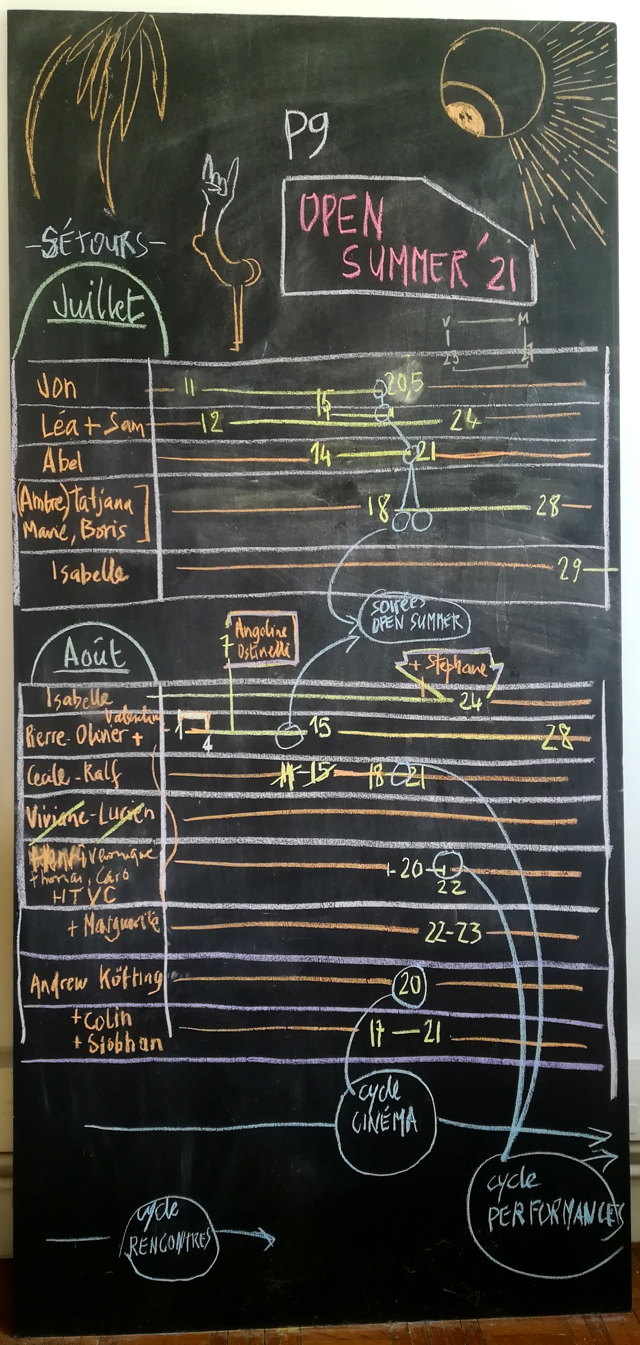 P9
OPEN
SUMMER '21
-SÉJOURS-
Juillet
V M
23
Jon 11 205
Léa + Sam 12 24
Abel 14 21
(Ambre) Tatjana
Mané, Boris 18 28
Isabelle 29
soirées
OPEN SUMMER
Août
7
Angeline
Ostinelli
+ Stéphane
Isabelle 24
Valentine
Pierre-Olivier + 1 4 15 28
Cecile-Ralf 14-15 18 21
Viviane-Lucien
Henri Véronique
Thomas, Caro
HTVC
20
22
+ Marguerite 22-23
Andrew Kötting 20
+ Colin
+ Siobhan
17 — 21
cycle
CINÉMA
cycle
PERFORMANCES
cycle
RENCONTRES